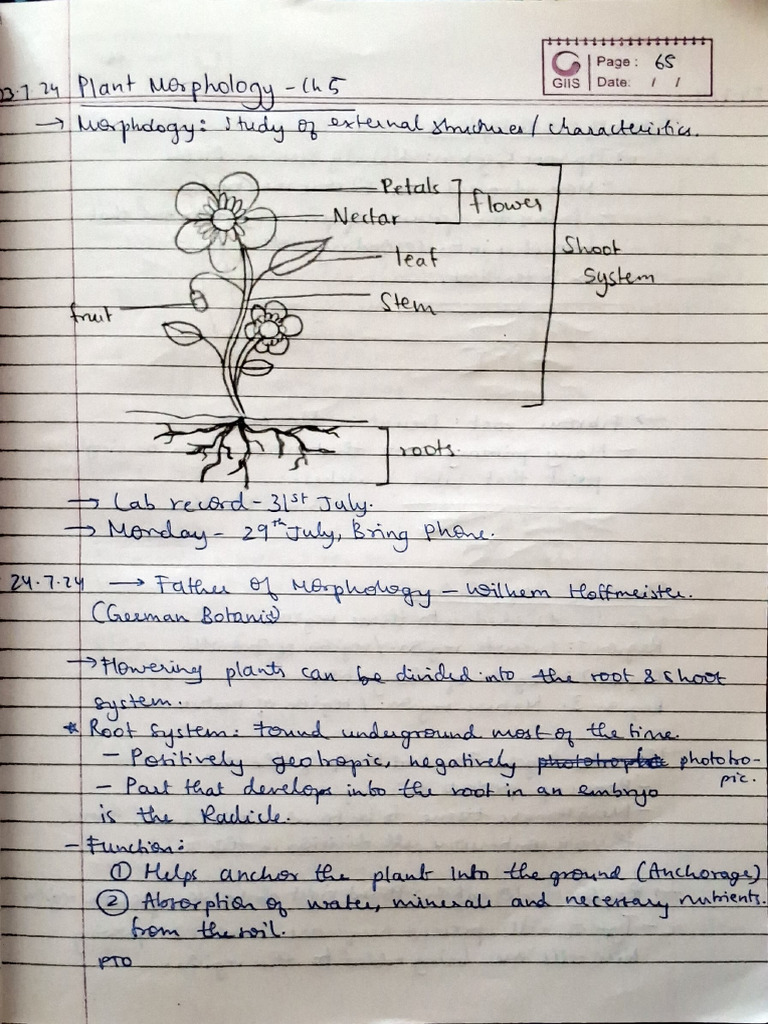 GIIS
Page: 65
Date: / /
23.7.24 Plant Morphology - Ch 5
→ Morphology: Study of external structures/characteristics.
Petals
Nectar
flower
leaf
Shoot
System
Stem
fruit
roots.
→ Lab record - 31st July.
→ Monday - 29th July, Bring phone.
24.7.24 → Father of Morphology - Wilhem Hoffmeister.
(German Botanist)
→ Flowering plants can be divided into the root & shoot
system.
* Root System: Found underground most of the time.
- Positively geotropic, negatively phototropic phototro-
pic.
- Part that develops into the root in an embryo
is the Radicle.
- Function:
① Helps anchor the plant into the ground (Anchorage)
② Absorption of water, minerals and necessary nutrients.
from the soil.
PTO